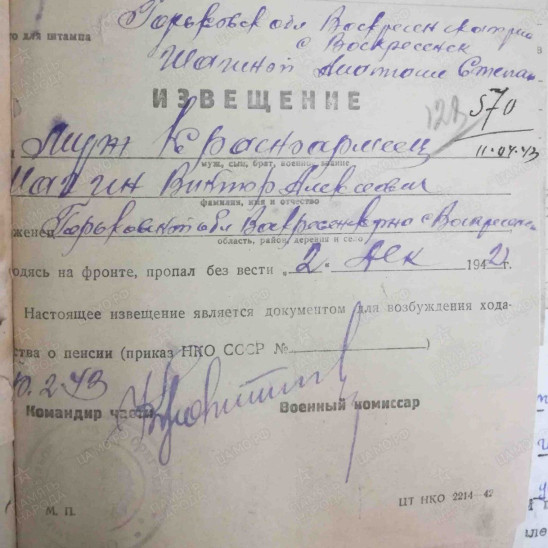 го для штампа
Горьковск обл Воскресен
с Воскресенск
Шагиной Степан
ИЗВЕЩЕНИЕ
122 570
11.04.43
муж Красноармеец
муж, сын, брат, военное звание
Шагин Виктор Алексеевич
фамилия, имя и отчество
женец Горьковск обл с Воскресенск
область, район, деревня и село
одясь на фронте, пропал без вести „2“ Дек 1942 г.
Настоящее извещение является документом для возбуждения хода-
ства о пенсии (приказ НКО СССР № )
2.43
Командир части Военный комиссар
М. П.
ЦТ НКО 2214—42